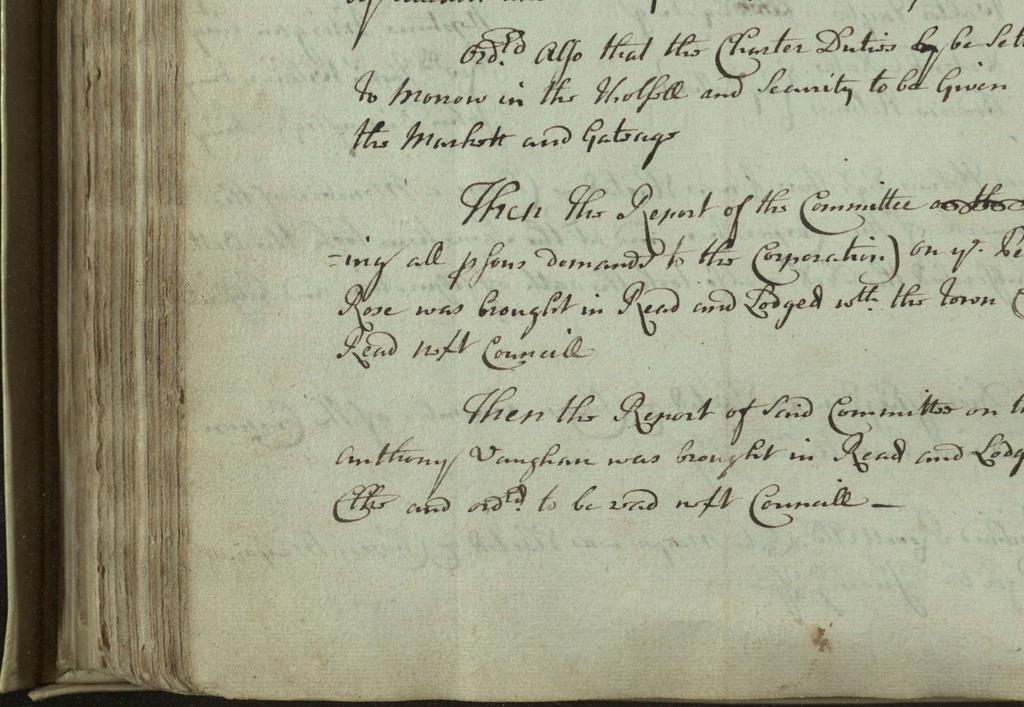 Ord.ᵉᵈ Also that the Charter Duties be Sett
to Morrow in the Tholsell and Security to be Given
the Markett and Gateage
Then the Report of the Committee
=ing all psons demands to the Corporation) on yᵉ. Pe
Rose was brought in Read and Lodged wᵗʰ. the Town C
Read next Councill
Then the Report of Said Committee on th
Anthony Vaughan was brought in Read and Lodg
Clke and ordᵉᵈ. to be read next Councill —